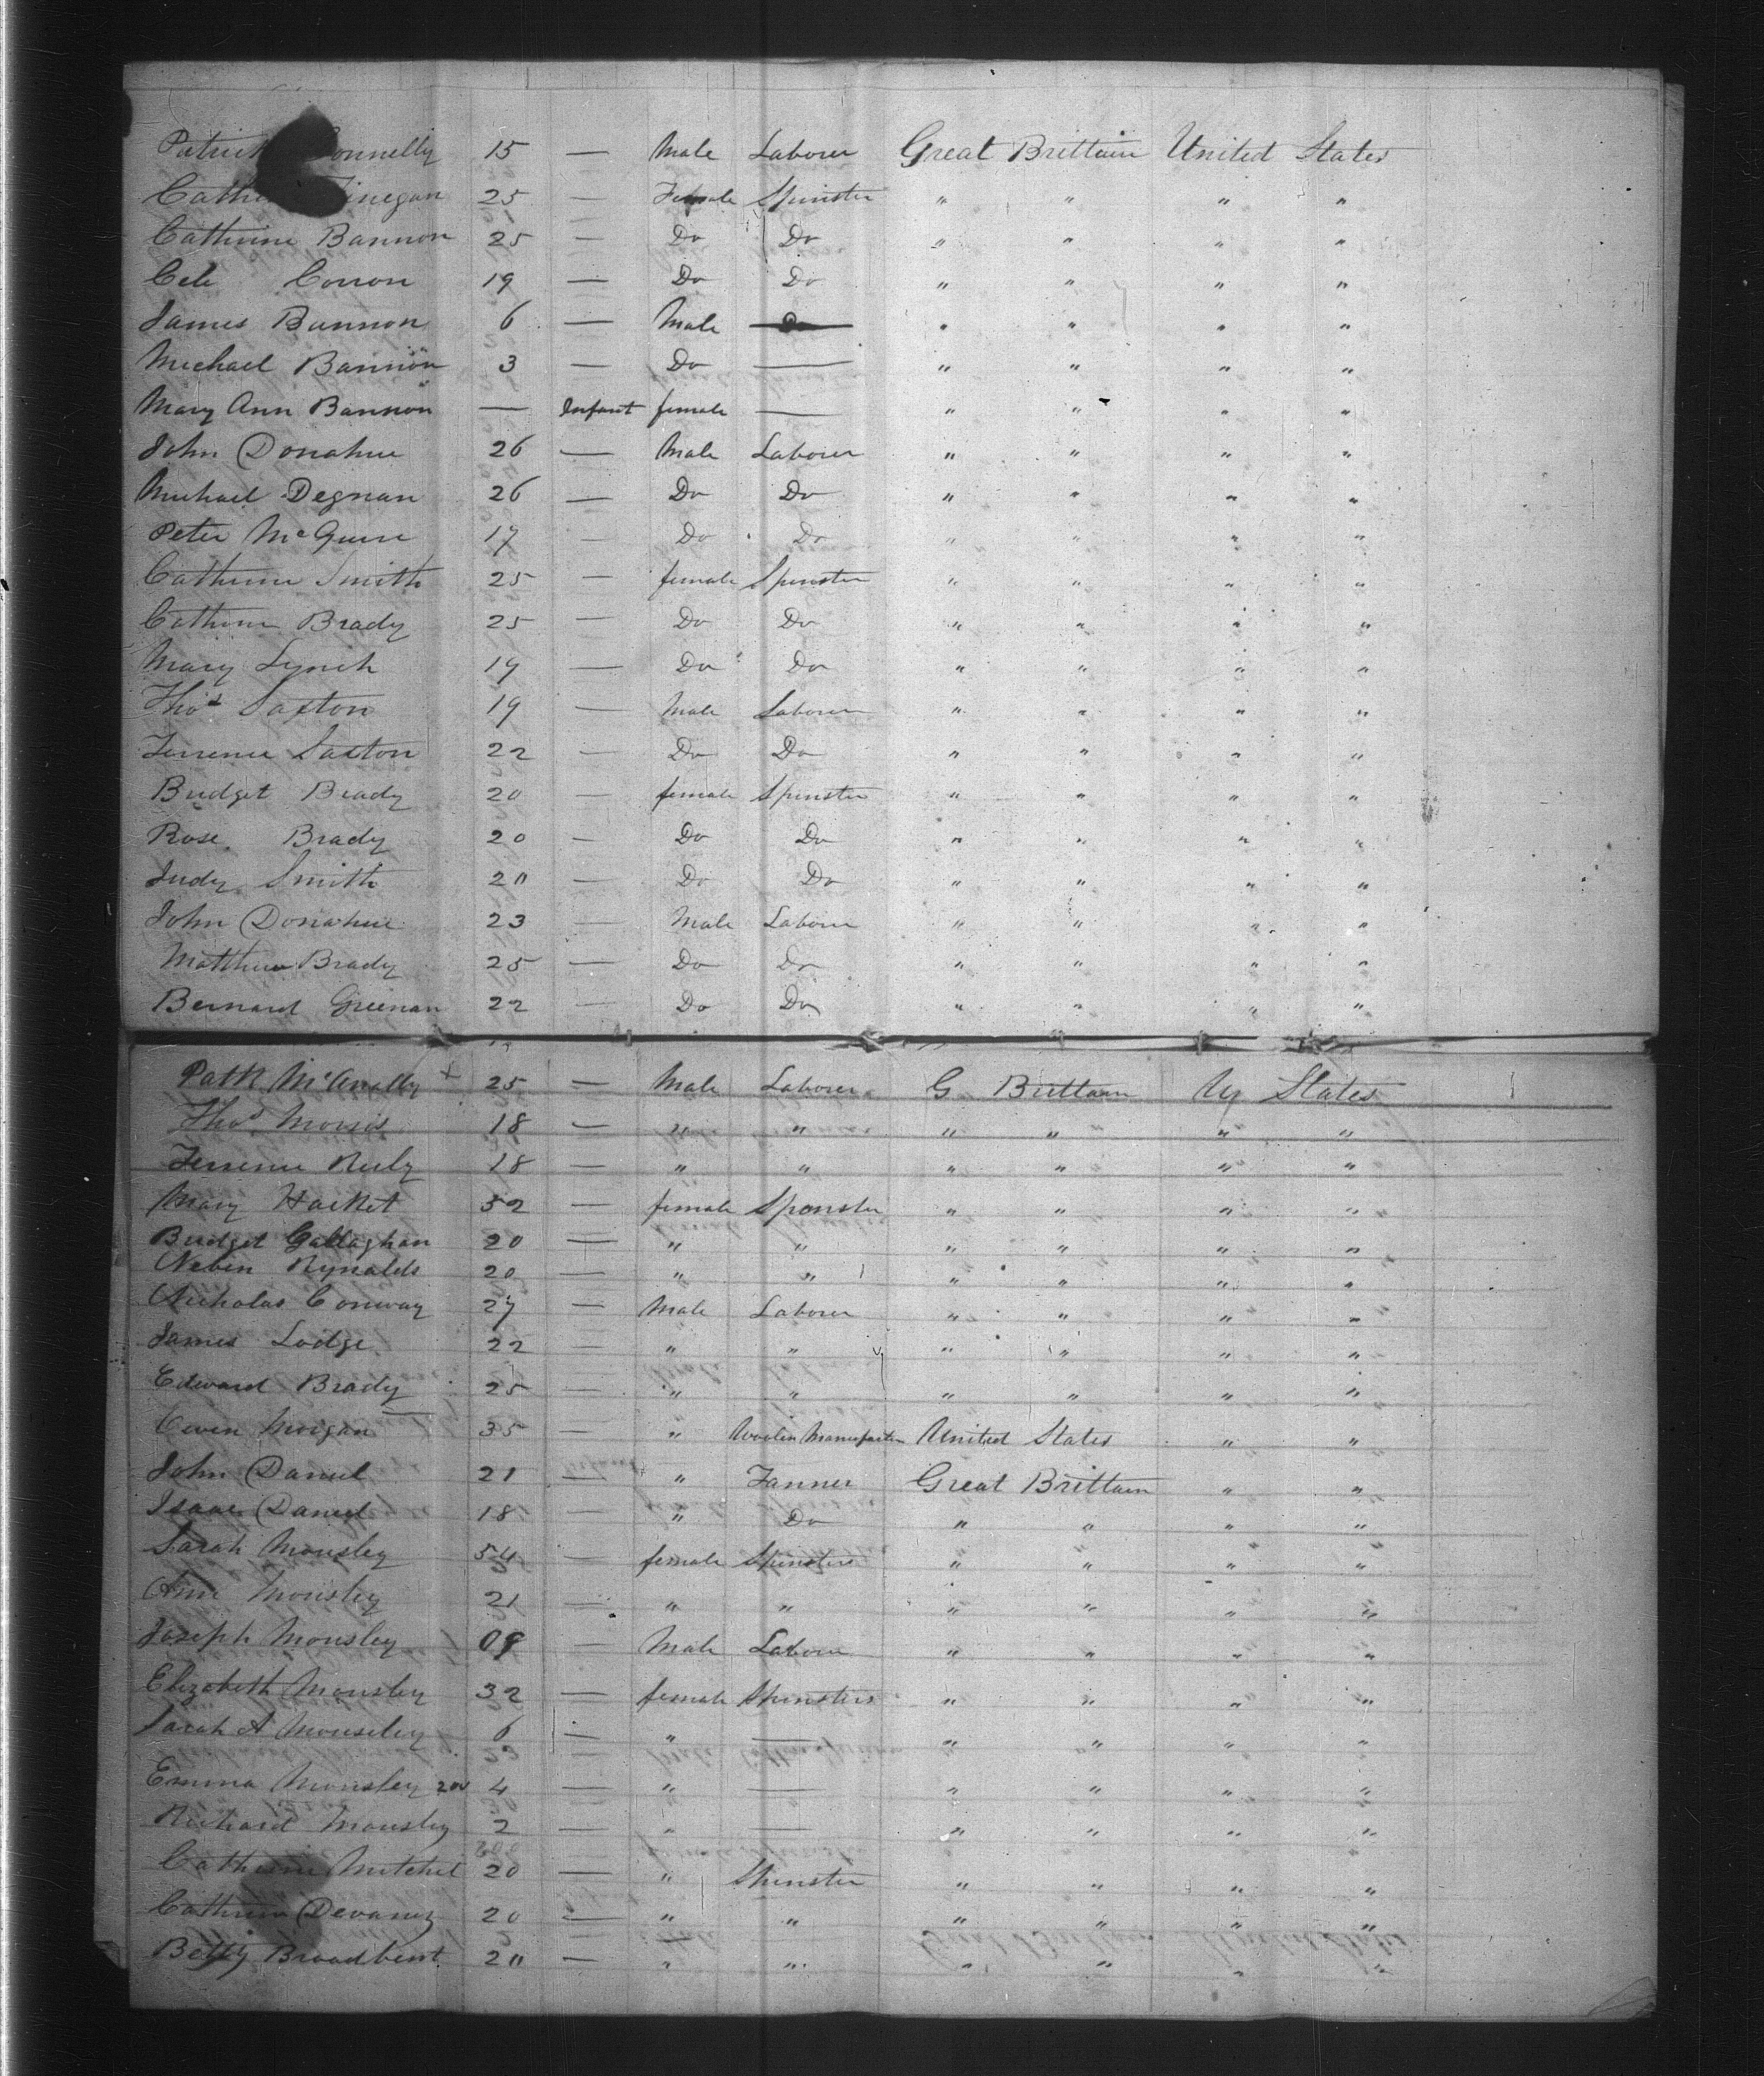 Patrick Connelly 15 — Male Laborer Great Brittain United States
Finegan 25 — Female Spinster " " " "
Catherine Bannon 25 — Do Do " " " "
Cele Conron 19 — Do Do " " " "
James Bannon 6 — Male Do " " " "
Michael Bannon 3 — Do — " " " "
Mary Ann Bannon — Infant female — " " " "
John Donahue 26 — Male Laborer " " " "
Michael Degnan 26 — Do Do " " " "
Peter McGuire 17 — Do Do " " " "
Catherine Smith 25 — female Spinster " " " "
Catherine Brady 25 — Do Do " " " "
Mary Lynch 19 — Do Do " " " "
Thos Saxton 19 — Male Laborer " " " "
Terrence Saxton 22 — Do Do " " " "
Bridget Brady 20 — female Spinster " " " "
Rose Brady 20 — Do Do " " " "
Judy Smith 20 — Do Do " " " "
John Donahue 23 — Male Laborer " " " "
Matthew Brady 25 — Do Do " " " "
Bernard Greenan 22 — Do Do " " " "
Patk McAnally + 25 — Male Laborer G Brittain U States
Thos Morris 18 — " " " " " "
Terrence Reily 18 — " " " " " "
Mary Hacket 52 — female Spinster " " " "
Bridget Gallaghan 20 — " " " " " "
Rynalds 20 — " " " " " "
Nicholas Conway 27 — Male Laborer " " " "
James Lodge 22 — " " " " " "
Edward Brady 25 — " " " " " "
Owen Morgan 35 — " Woolen Manufacturer United States " "
John Daniel 21 — " Tanner Great Brittain " "
Isaac Daniel 18 — " Do " " " "
Sarah Mousley 54 — female Spinsters " " " "
Ann Mousley 21 — " " " " " "
Joseph Mousley 09 — Male Laborer " " " "
Elizabeth Mousley 32 — female Spinsters " " " "
Sarah A Mouseley 6 — " — " " " "
Emma Mousley 200 4 — " — " " " "
Richard Mousley 2 — " — " " " "
Catherine Mitchel 20 — " Spinster " " " "
Catherine Devaney 20 — " " " " " "
Betty Broadbent 20 — " " " " " "